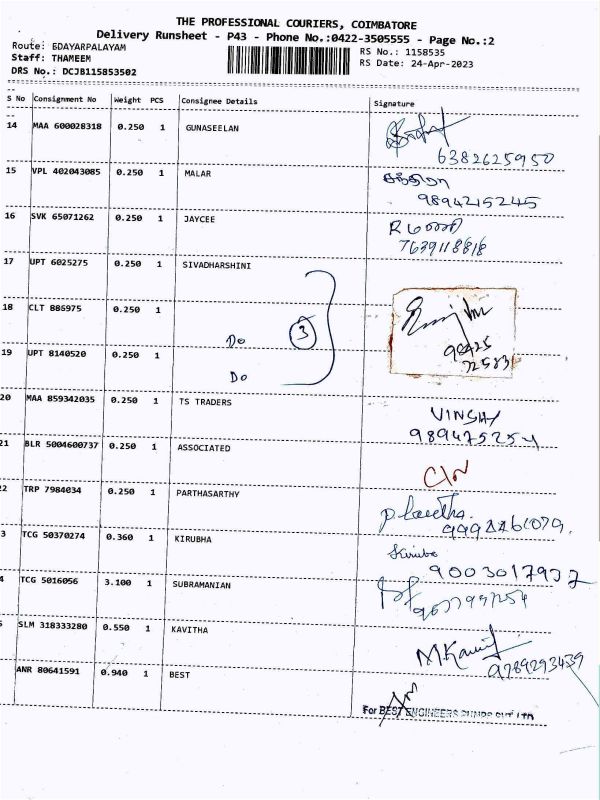 THE PROFESSIONAL COURIERS, COIMBATORE
Delivery Runsheet - P43 - Phone No.:0422-3505555 - Page No.:2
Route: 6DAYARPALAYAM
Staff: THAMEEM
DRS No.: DCJB115853502
RS No.: 1158535
RS Date: 24-Apr-2023
S No Consignment No Weight PCS Consignee Details Signature
14 MAA 600028318 0.250 1 GUNASEELAN
6382625950
15 VPL 402043085 0.250 1 MALAR
9894215245
16 SVK 65071262 0.250 1 JAYCEE
7639118818
17 UPT 6025275 0.250 1 SIVADHARSHINI
18 CLT 886975 0.250 1
Do 3
19 UPT 8140520 0.250 1
Do
98425
72583
20 MAA 859342035 0.250 1 TS TRADERS
21 BLR 5004600737 0.250 1 ASSOCIATED
2 TRP 7984034 0.250 1 PARTHASARTHY
3 TCG 50370274 0.360 1 KIRUBHA
Kiruba
4 TCG 5016056 3.100 1 SUBRAMANIAN
SLM 318333280 0.550 1 KAVITHA
9789293439
ANR 80641591 0.940 1 BEST
For BEST ENGINEERS PUMPS PVT LTD